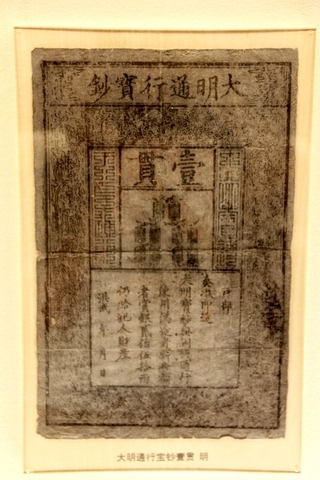 大明通行寶鈔
壹貫
戶部
奏准印造
大明寶鈔與銅錢通行
使用
者賞銀貳佰伍拾兩
仍給犯人財產
洪武 年 月 日
大明通行宝钞壹贯 明